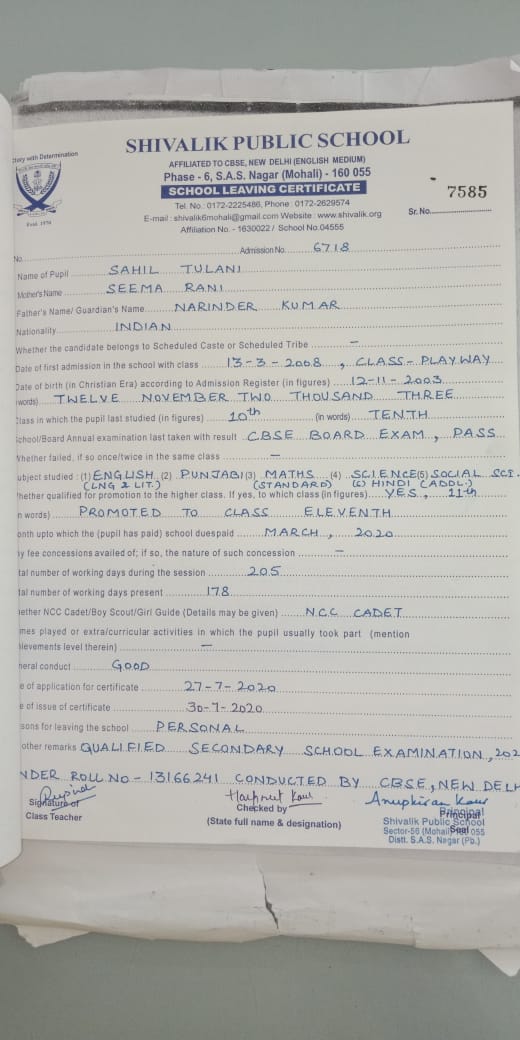 SHIVALIK PUBLIC SCHOOL
ory with Determination
AFFILIATED TO CBSE, NEW DELHI (ENGLISH MEDIUM)
Phase - 6, S.A.S. Nagar (Mohali) - 160 055
SCHOOL LEAVING CERTIFICATE
Estd. 1974
Tel. No. 0172-2225486, Phone : 0172-2629574
E-mail : shivalik6mohali@gmail.com Website : www.shivalik.org
Affiliation No. - 1630022 / School No.04555
7585
Sr. No.
No. Admission No. 6718
Name of Pupil SAHIL TULANI
Mother's Name SEEMA RANI
Father's Name/ Guardian's Name NARINDER KUMAR
Nationality INDIAN
Whether the candidate belongs to Scheduled Caste or Scheduled Tribe –
Date of first admission in the school with class 13-3-2008, CLASS-PLAYWAY
Date of birth (in Christian Era) according to Admission Register (in figures) 12-11-2003
words) TWELVE NOVEMBER TWO THOUSAND THREE
Class in which the pupil last studied (in figures) 10th (in words) TENTH
chool/Board Annual examination last taken with result CBSE BOARD EXAM, PASS
Whether failed, if so once/twice in the same class –
ubject studied : (1) ENGLISH (2) PUNJABI (3) MATHS (4) SCIENCE (5) SOCIAL SCI.
(LNG & LIT.) (STANDARD) (6) HINDI (ADDL.)
hether qualified for promotion to the higher class. If yes, to which class (in figures) YES, 11th
n words) PROMOTED TO CLASS ELEVENTH
onth upto which the (pupil has paid) school duespaid MARCH, 2020
y fee concessions availed of; if so, the nature of such concession –
tal number of working days during the session 205
tal number of working days present 178
ether NCC Cadet/Boy Scout/Girl Guide (Details may be given) NCC CADET
mes played or extra/curricular activities in which the pupil usually took part (mention
ievements level therein) –
neral conduct GOOD
e of application for certificate 27-7-2020
e of issue of certificate 30-7-2020
sons for leaving the school PERSONAL
other remarks QUALIFIED SECONDARY SCHOOL EXAMINATION, 202
NDER ROLL NO - 13166241 CONDUCTED BY CBSE, NEW DELH
Harpreet Kaur Anupkiran Kaur
Signature of Checked by Principal
Class Teacher (State full name & designation) Seal
Principal
Shivalik Public School
Sector-56 (Mohali) 160 055
Distt. S.A.S. Nagar (Pb.)